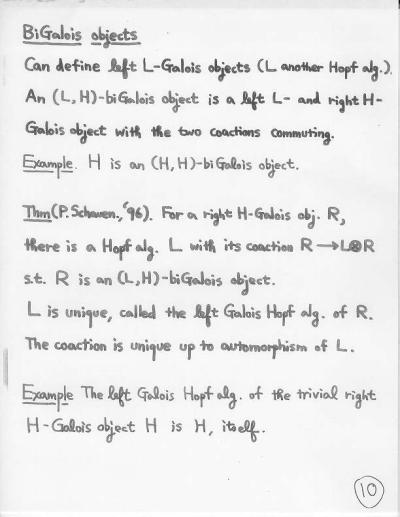 BiGalois objects
Can define left L-Galois objects (L another Hopf alg.).
An (L, H)-biGalois object is a left L- and right H-
Galois object with the two coactions commuting.
Example. H is an (H, H)-biGalois object.
Thm (P. Schauen., '96). For a right H-Galois obj. R,
there is a Hopf alg. L with its coaction R → L⊗R
s.t. R is an (L, H)-biGalois object.
L is unique, called the left Galois Hopf alg. of R.
The coaction is unique up to automorphism of L.
Example The left Galois Hopf alg. of the trivial right
H-Galois object H is H, itself.
10